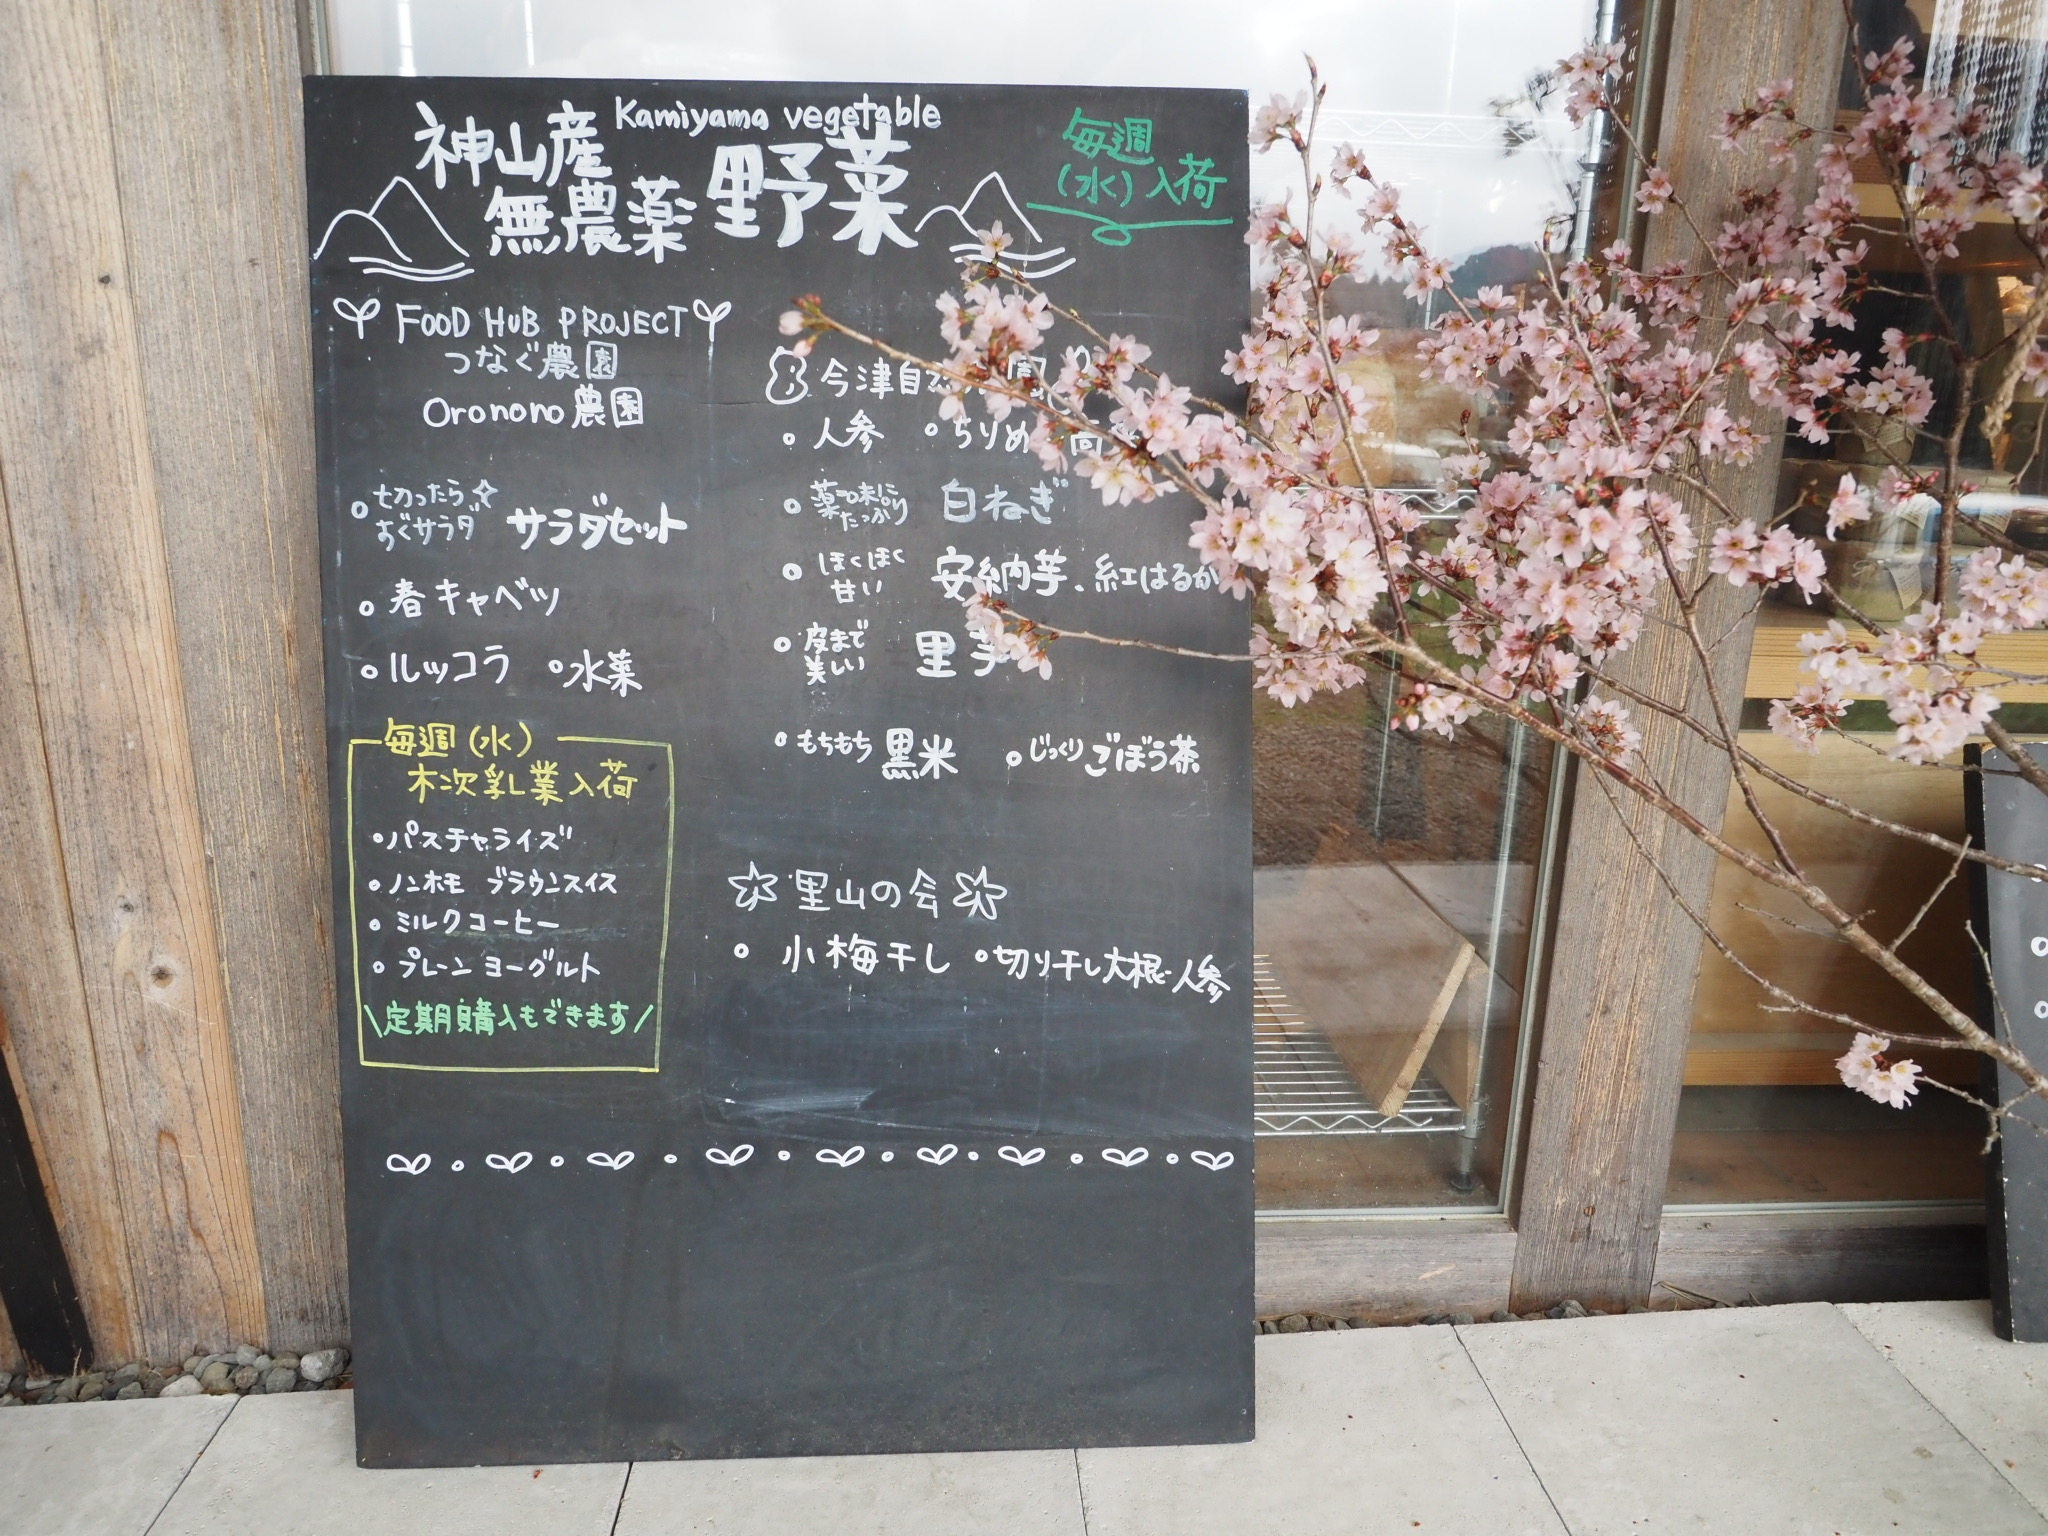 Kamiyama vegetable
神山産
無農薬 野菜
毎週
(水)入荷
FOOD HUB PROJECT
つなぐ農園
Oronono 農園
切ったら
すぐサラダ サラダセット
春キャベツ
ルッコラ 水菜
毎週(水)
木次乳業入荷
パスチャライズ
ノンホモ ブラウンスイス
ミルクコーヒー
プレーン ヨーグルト
\定期購入もできます/
今津自然 園
人参 ちりめ
薬味に
たっぷり 白ねぎ
ほくほく
甘い 安納芋、紅はるか
皮まで
美しい 里芋
もちもち 黒米 じっくり ごぼう茶
里山の会
小梅干し 切り干し大根・人参